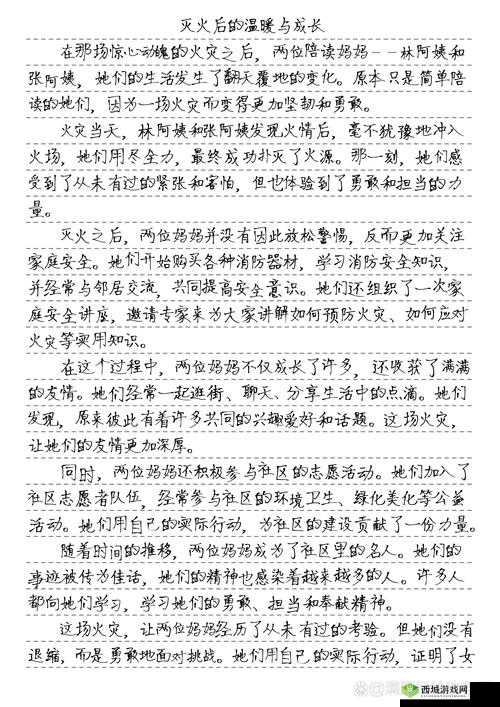 灭火后的温暖与成长
在那场惊心动魄的火灾之后，两位陪读妈妈--林阿姨和
张阿姨，她们的生活发生了翻天覆地的变化。原本只是简单陪
读的她们，因为一场火灾而变得更加坚韧和勇敢。
火灾当天，林阿姨和张阿姨发现火情后，毫不犹豫地冲入
火场，她们用尽全力，最终成功扑灭了火源。那一刻，她们感
受到了从未有过的紧张和害怕，但也体验到了勇敢和担当的力
量。
灭火之后，两位妈妈并没有因此放松警惕，反而更加关注
家庭安全。她们开始购买各种消防器材，学习消防安全知识，
并经常与邻居交流，共同提高安全意识。她们还组织了一次家
庭安全讲座，邀请专家来为大家讲解如何预防火灾、如何应对
火灾等实用知识。
在这个过程中，两位妈妈不仅成长了许多，还收获了满满
的友情。她们经常一起逛街、聊天、分享生活中的点滴。她们
发现，原来彼此有着许多共同的兴趣爱好和话题。这场火灾，
让她们的友情更加深厚。
同时，两位妈妈还积极参与社区的志愿活动。她们加入了
社区志愿者队伍，经常参与社区的环境卫生、绿化美化等公益
活动。她们用自己的实际行动，为社区的建设贡献了一份力量。
随着时间的推移，两位妈妈成为了社区里的名人。她们的
事迹被传为佳话，她们的精神也感染着越来越多的人。许多人
都向她们学习，学习她们的勇敢、担当和奉献精神。
这场火灾，让两位妈妈经历了从未有过的考验。但她们没有
退缩，而是勇敢地面对挑战。她们用自己的实际行动，证明了女
西城游戏网